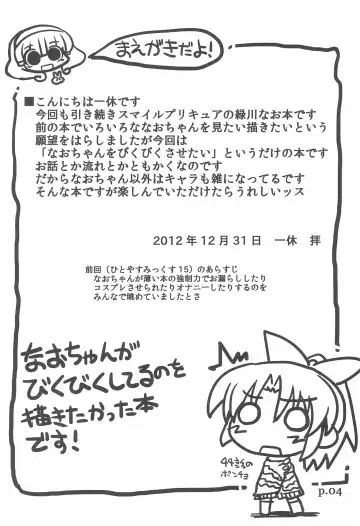 まえがきだよ!
■こんにちは一休です
今回も引き続きスマイルプリキュアの緑川なお本です
前の本でいろいろななおちゃんを見たい描きたいという
願望をはらしましたが今回は
「なおちゃんをびくびくさせたい」というだけの本です
お話とか流れとかともかくなのです
だからなおちゃん以外はキャラも雑になってるです
そんな本ですが楽しんでいただけたらうれしいッス
2012年12月31日 一休 拝
前回(ひとやすみっくす15)のあらすじ
なおちゃんが薄い本の強制力でお漏らししたり
コスプレさせられたりオナニーしたりするのを
みんなで眺めていましたとさ
なおちゃんが
びくびくしてるのを
描きたかった本
です!
ポンチョ
p.04